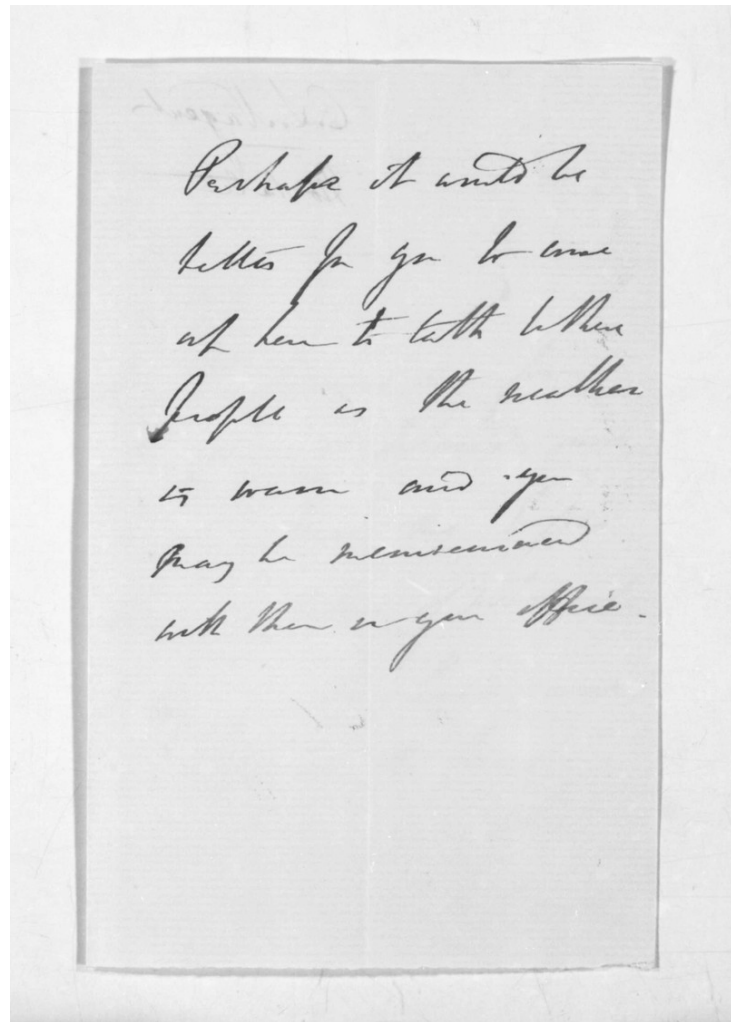 Perhaps it would be
better for you to come
up here to talk to these
people as the weather
is warm and you
may be
with them in your office.